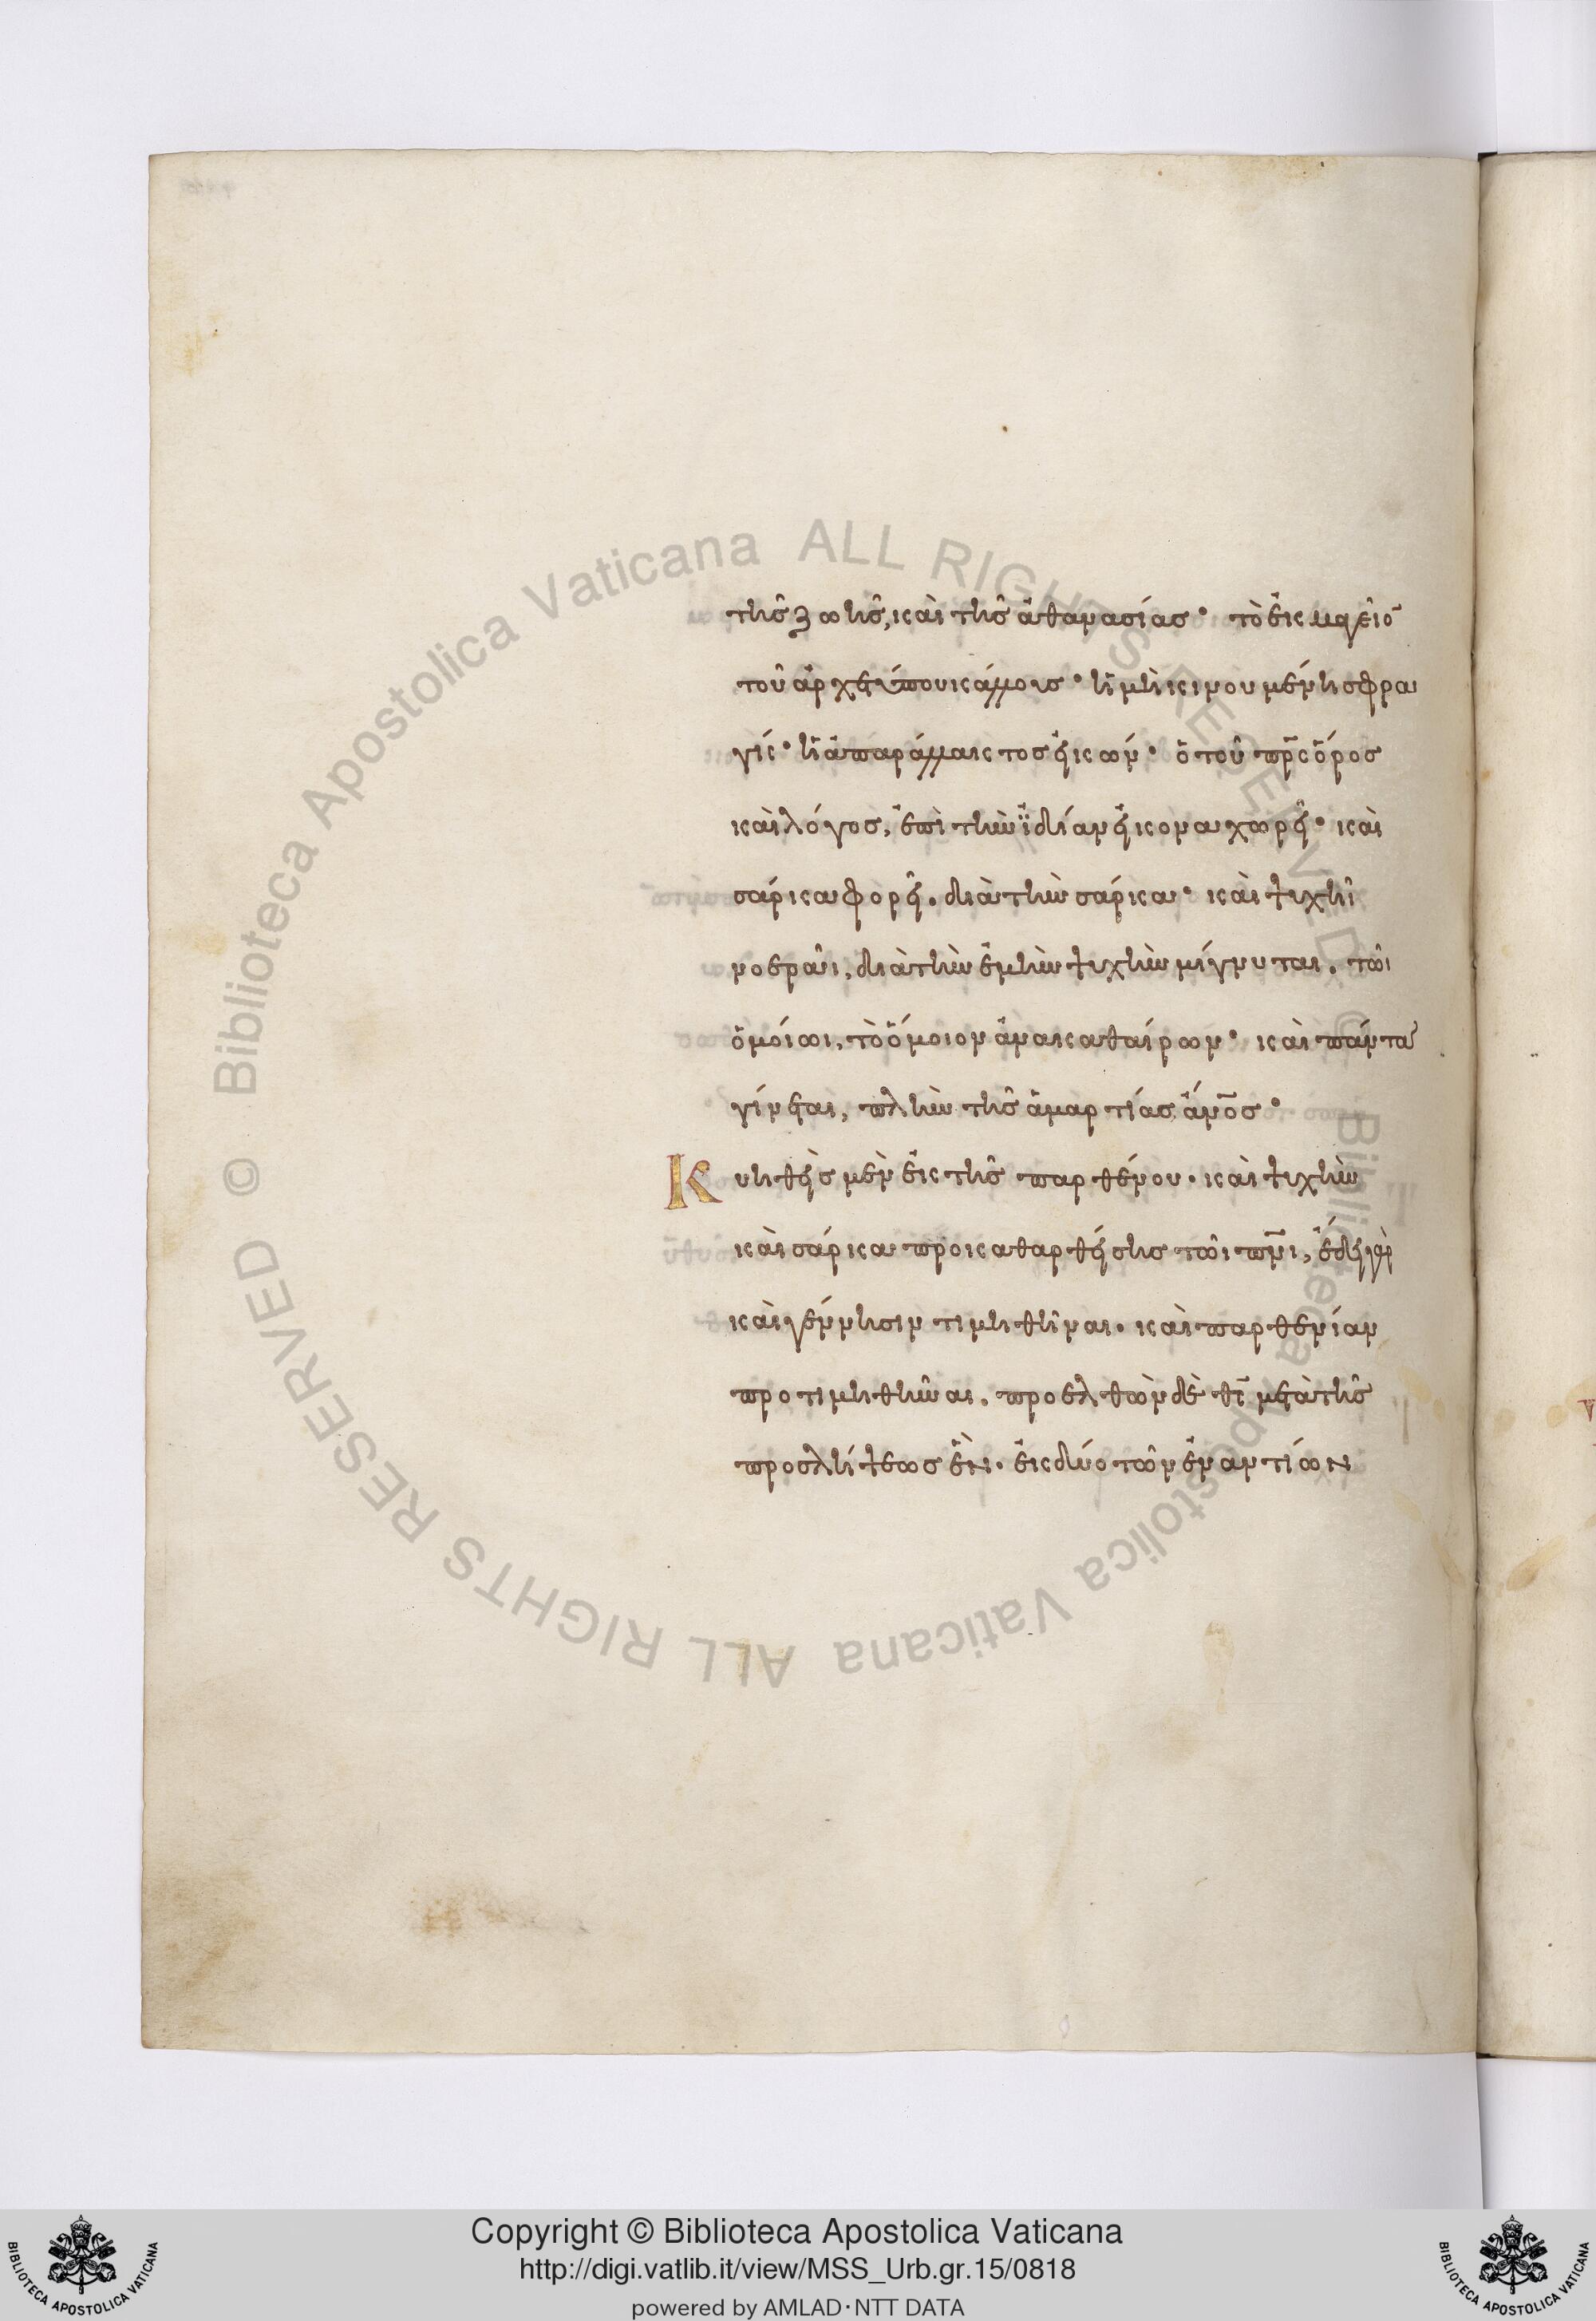 τῆς ζωῆς, καὶ τῆς ἀθανασίας· τὸ ἐκμαγεῖο̄
τοῦ ἀρχετύπου κάλλους· ἡ μὴ κινουμένη σφρα
γίς· ἡ ἀπαράλλακτος εἰκών· ὁ τοῦ πρ̅ς ὅρος
καὶ λόγος, ἐπὶ τὴν ἰδίαν εἰκόνα χωρεῖ· καὶ
σάρκα φορεῖ. διὰ τὴν σάρκα· καὶ ψυχῆι
νοερᾶι, διὰ τὴν ἐμὴν ψυχὴν μίγνυται. τῶι
ὁμοίωι, τὸ ὅμοιον ἀνακαθαίρων· καὶ πάντα
γίνεται, πλὴν τῆς ἁμαρτίας ἄν̅ος·
Κυηθεὶς μὲν ἐκ τῆς παρθένου. καὶ ψυχὴν
καὶ σάρκα προκαθαρθείσης τῶι πν̅ι, ἔδει γὰρ
καὶ γέννησιν τιμηθῆναι. καὶ παρθενίαν
προτιμηθῆναι. προελθὼν δὲ θς̅ μετὰ τῆς
προσλήψεως ἓν. ἐκ δύο τῶν ἐναντίων
Copyright © Biblioteca Apostolica Vaticana
http://digi.vatlib.it/view/MSS_Urb.gr.15/0818
powered by AMLAD·NTT DATA
BIBLIOTECA APOSTOLICA VATICANA
BIBLIOTECA APOSTOLICA VATICANA
© Biblioteca Apostolica Vaticana ALL RIGHTS RESERVED
© Biblioteca Apostolica Vaticana ALL RIGHTS RESERVED